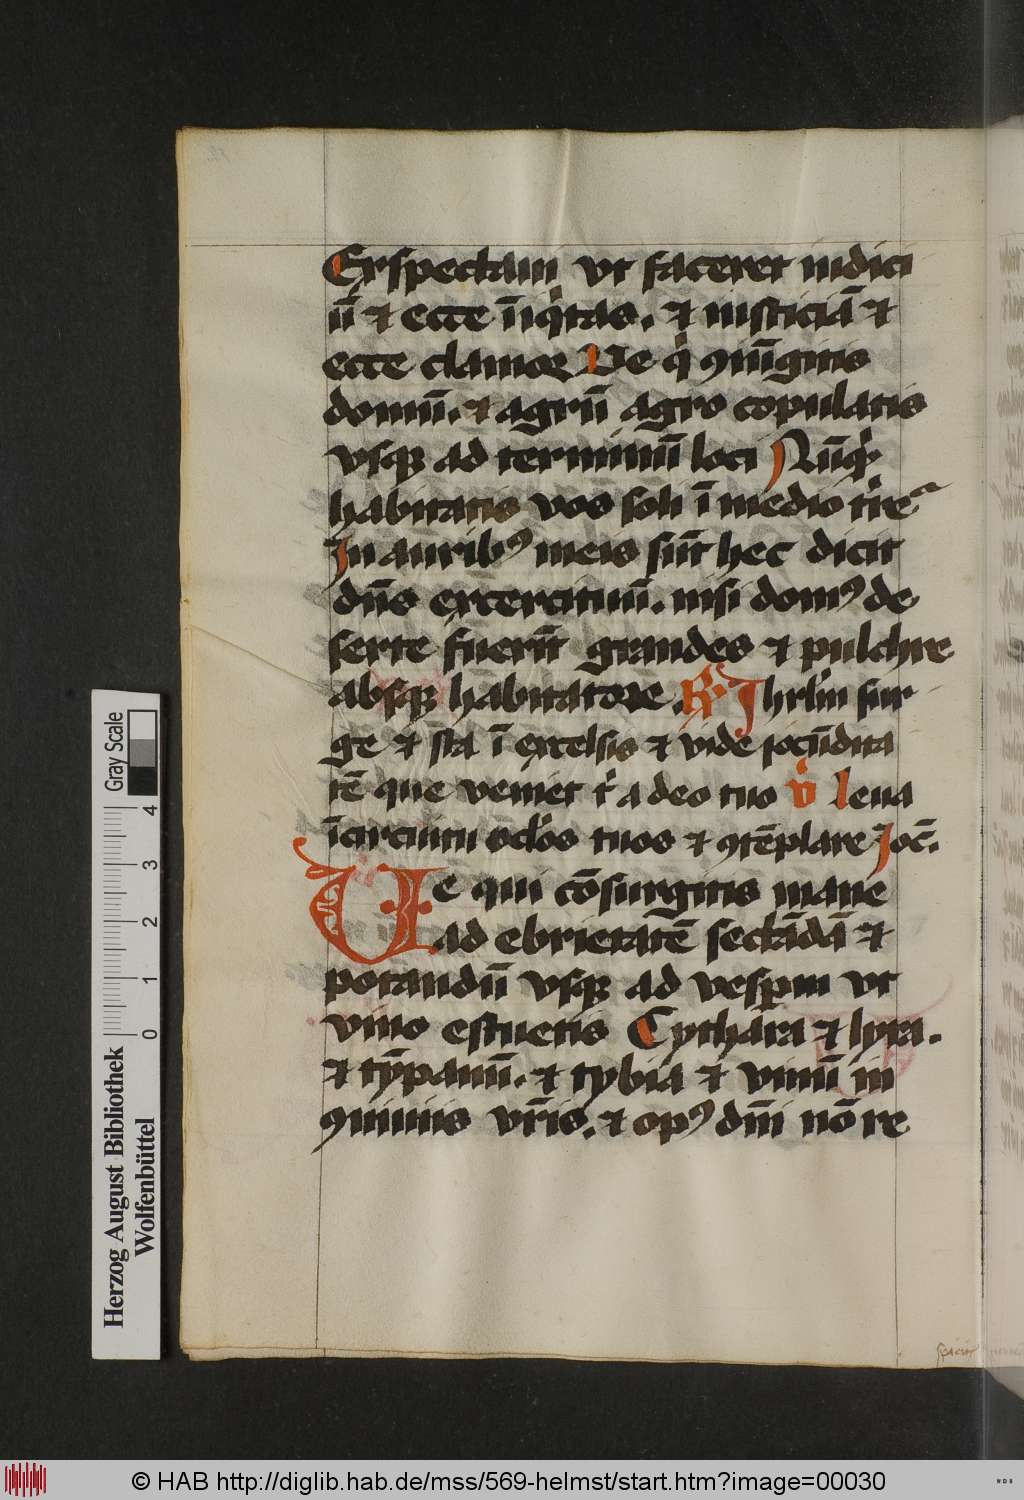 Exspectaui vt faceret iudici
ū et ecce īiq̇tas. et iusticiā et
ecce clamor Ve qi ꝯiūgitis
domū. et agrū agro copulatis
vsqꝫ ad terminū loci Nūqͥd
habitatis vos soli ī medio tr̄e
In auribꝰ meis sūt hec dicit
dn̄s exercituū. nisi domꝰ de
serte fuerūt grandes et pulchre
absqꝫ habitatore. R Ihrlm̄ sur
ge et sta ī excelsis et vide iocūdita
tē que veniet tͥ a deo tuo v̄ Leua
īcircuitu oc̄los tuos et ꝯtēplare Ioc̄.
Ve qui cōsurgitis mane
ad ebrietatē sectādā et
potandū vsqꝫ ad vesꝑm vt
vino estuetis Cythara et lyra.
et tȳpanū. et tybia et vinū in
ꝯiuiis vr̄is. et opꝰ dn̄i nō re
Gray Scale
4
3
2
1
0
Herzog August Bibliothek
Wolfenbüttel
© HAB http://diglib.hab.de/mss/569-helmst/start.htm?image=00030